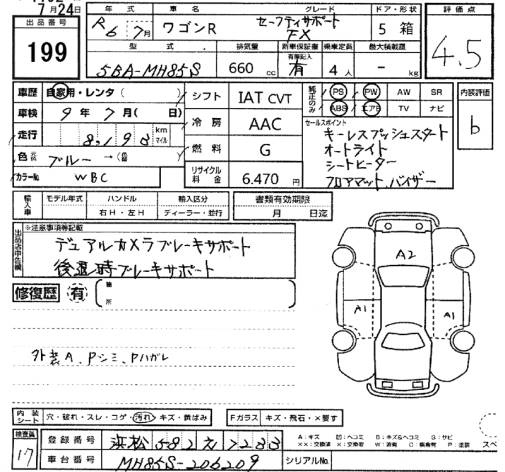 7月24日
出品番号
199
年式
R6年7月
車名
ワゴンR
グレード
セーフティサポート
FX
ドア・形状
5 箱
評価点
4.5
型式
5BA-MH85S
排気量
660 cc
新車保証書
有限記入
有
乗車定員
4 人
最大積載量
- kg
車歴 自家用・レンタ ( )
車検 9年 7月 ( 日)
走行 8,198 km マイル
色 ブルー→( )
カラーNo WBC
シフト IAT CVT
冷房 AAC
燃料 G
リサイクル料金 6.470 円
純正のみ
PS PW AW SR
ABS エアB TV ナビ
内装評価
b
セールスポイント
キーレスプッシュスタート
オートライト
シートヒーター
フロアマット,バイザー
輸入車
モデル年式 ハンドル 輸入区分
右H・左H ディーラー・並行
書類有効期限
月 日迄
出品店申告欄
※注意事項等記載
デュアルカメラブレーキサポート
後退時ブレーキサポート
修復歴 有
箇所
外装A、Pシミ、Pハガレ
A2
A1
A1
内装シート 穴・破れ・スレ・コゲ・汚れ・キズ・黄ばみ
Fガラス キズ・飛石・×要す
検査員
17
登録番号
車台番号 MH85S-206209
シリアルNo.